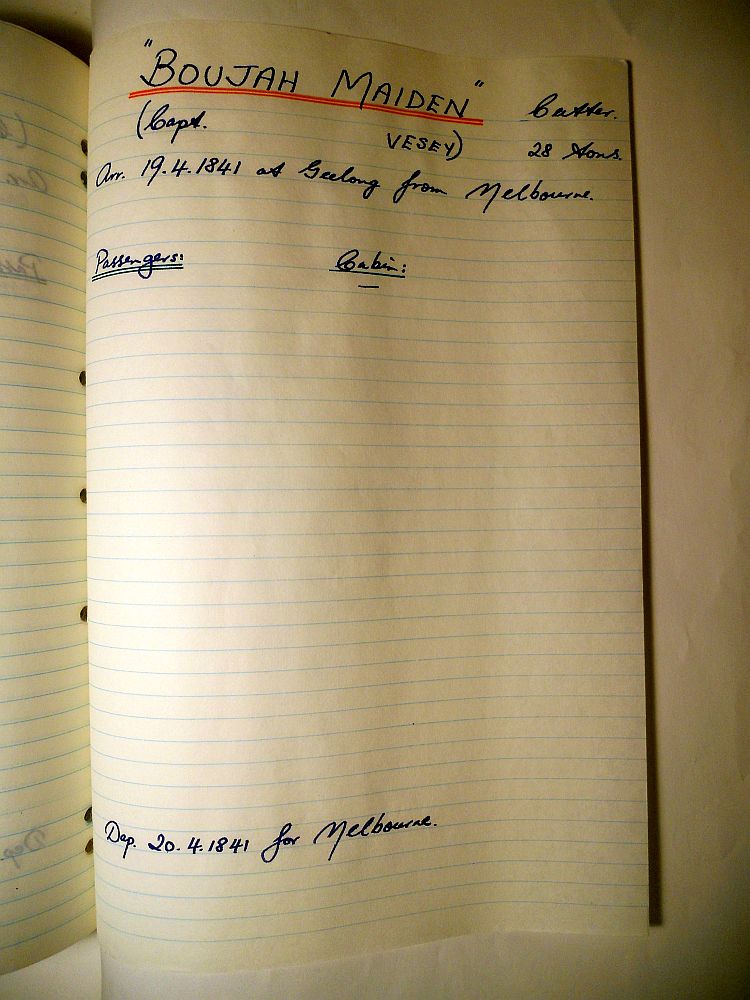 "BOUJAH MAIDEN" Cutter.
(Capt. VESEY) 28 tons.
Arr. 19.4.1841 at Geelong from Melbourne.
Passengers: Cabin:
—
Dep. 20.4.1841 for Melbourne.